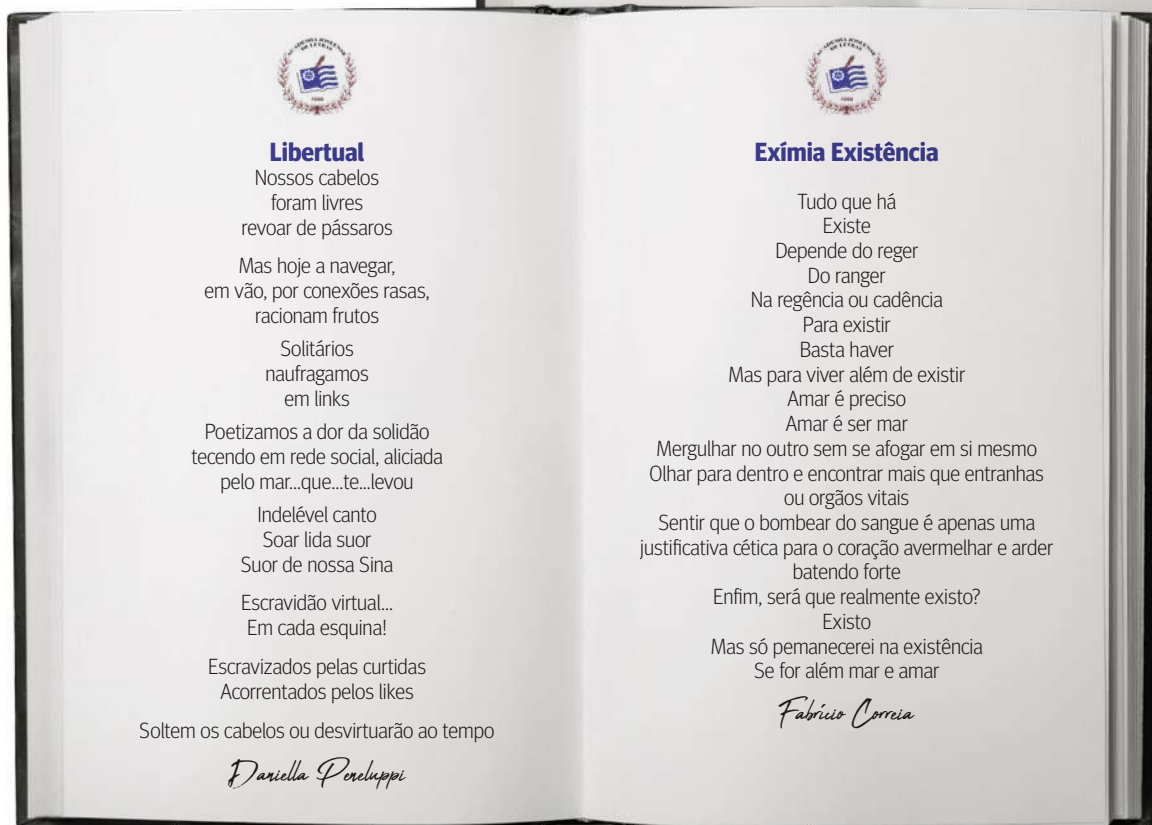 ACADEMIA JOSEENSE
DE LETRAS
Libertual
Nossos cabelos
foram livres
revoar de pássaros
Mas hoje a navegar,
em vão, por conexões rasas,
racionam frutos
Solitários
naufragamos
em links
Poetizamos a dor da solidão
tecendo em rede social, aliciada
pelo mar...que...te...levou
Indelével canto
Soar lida suor
Suor de nossa Sina
Escravidão virtual...
Em cada esquina!
Escravizados pelas curtidas
Acorrentados pelos likes
Soltem os cabelos ou desvirtuarão ao tempo
Daniella Peneluppi
ACADEMIA JOSEENSE
DE LETRAS
Exímia Existência
Tudo que há
Existe
Depende do reger
Do ranger
Na regência ou cadência
Para existir
Basta haver
Mas para viver além de existir
Amar é preciso
Amar é ser mar
Mergulhar no outro sem se afogar em si mesmo
Olhar para dentro e encontrar mais que entranhas
ou orgãos vitais
Sentir que o bombear do sangue é apenas uma
justificativa cética para o coração avermelhar e arder
batendo forte
Enfim, será que realmente existo?
Existo
Mas só pemanecerei na existência
Se for além mar e amar
Fabrício Correia